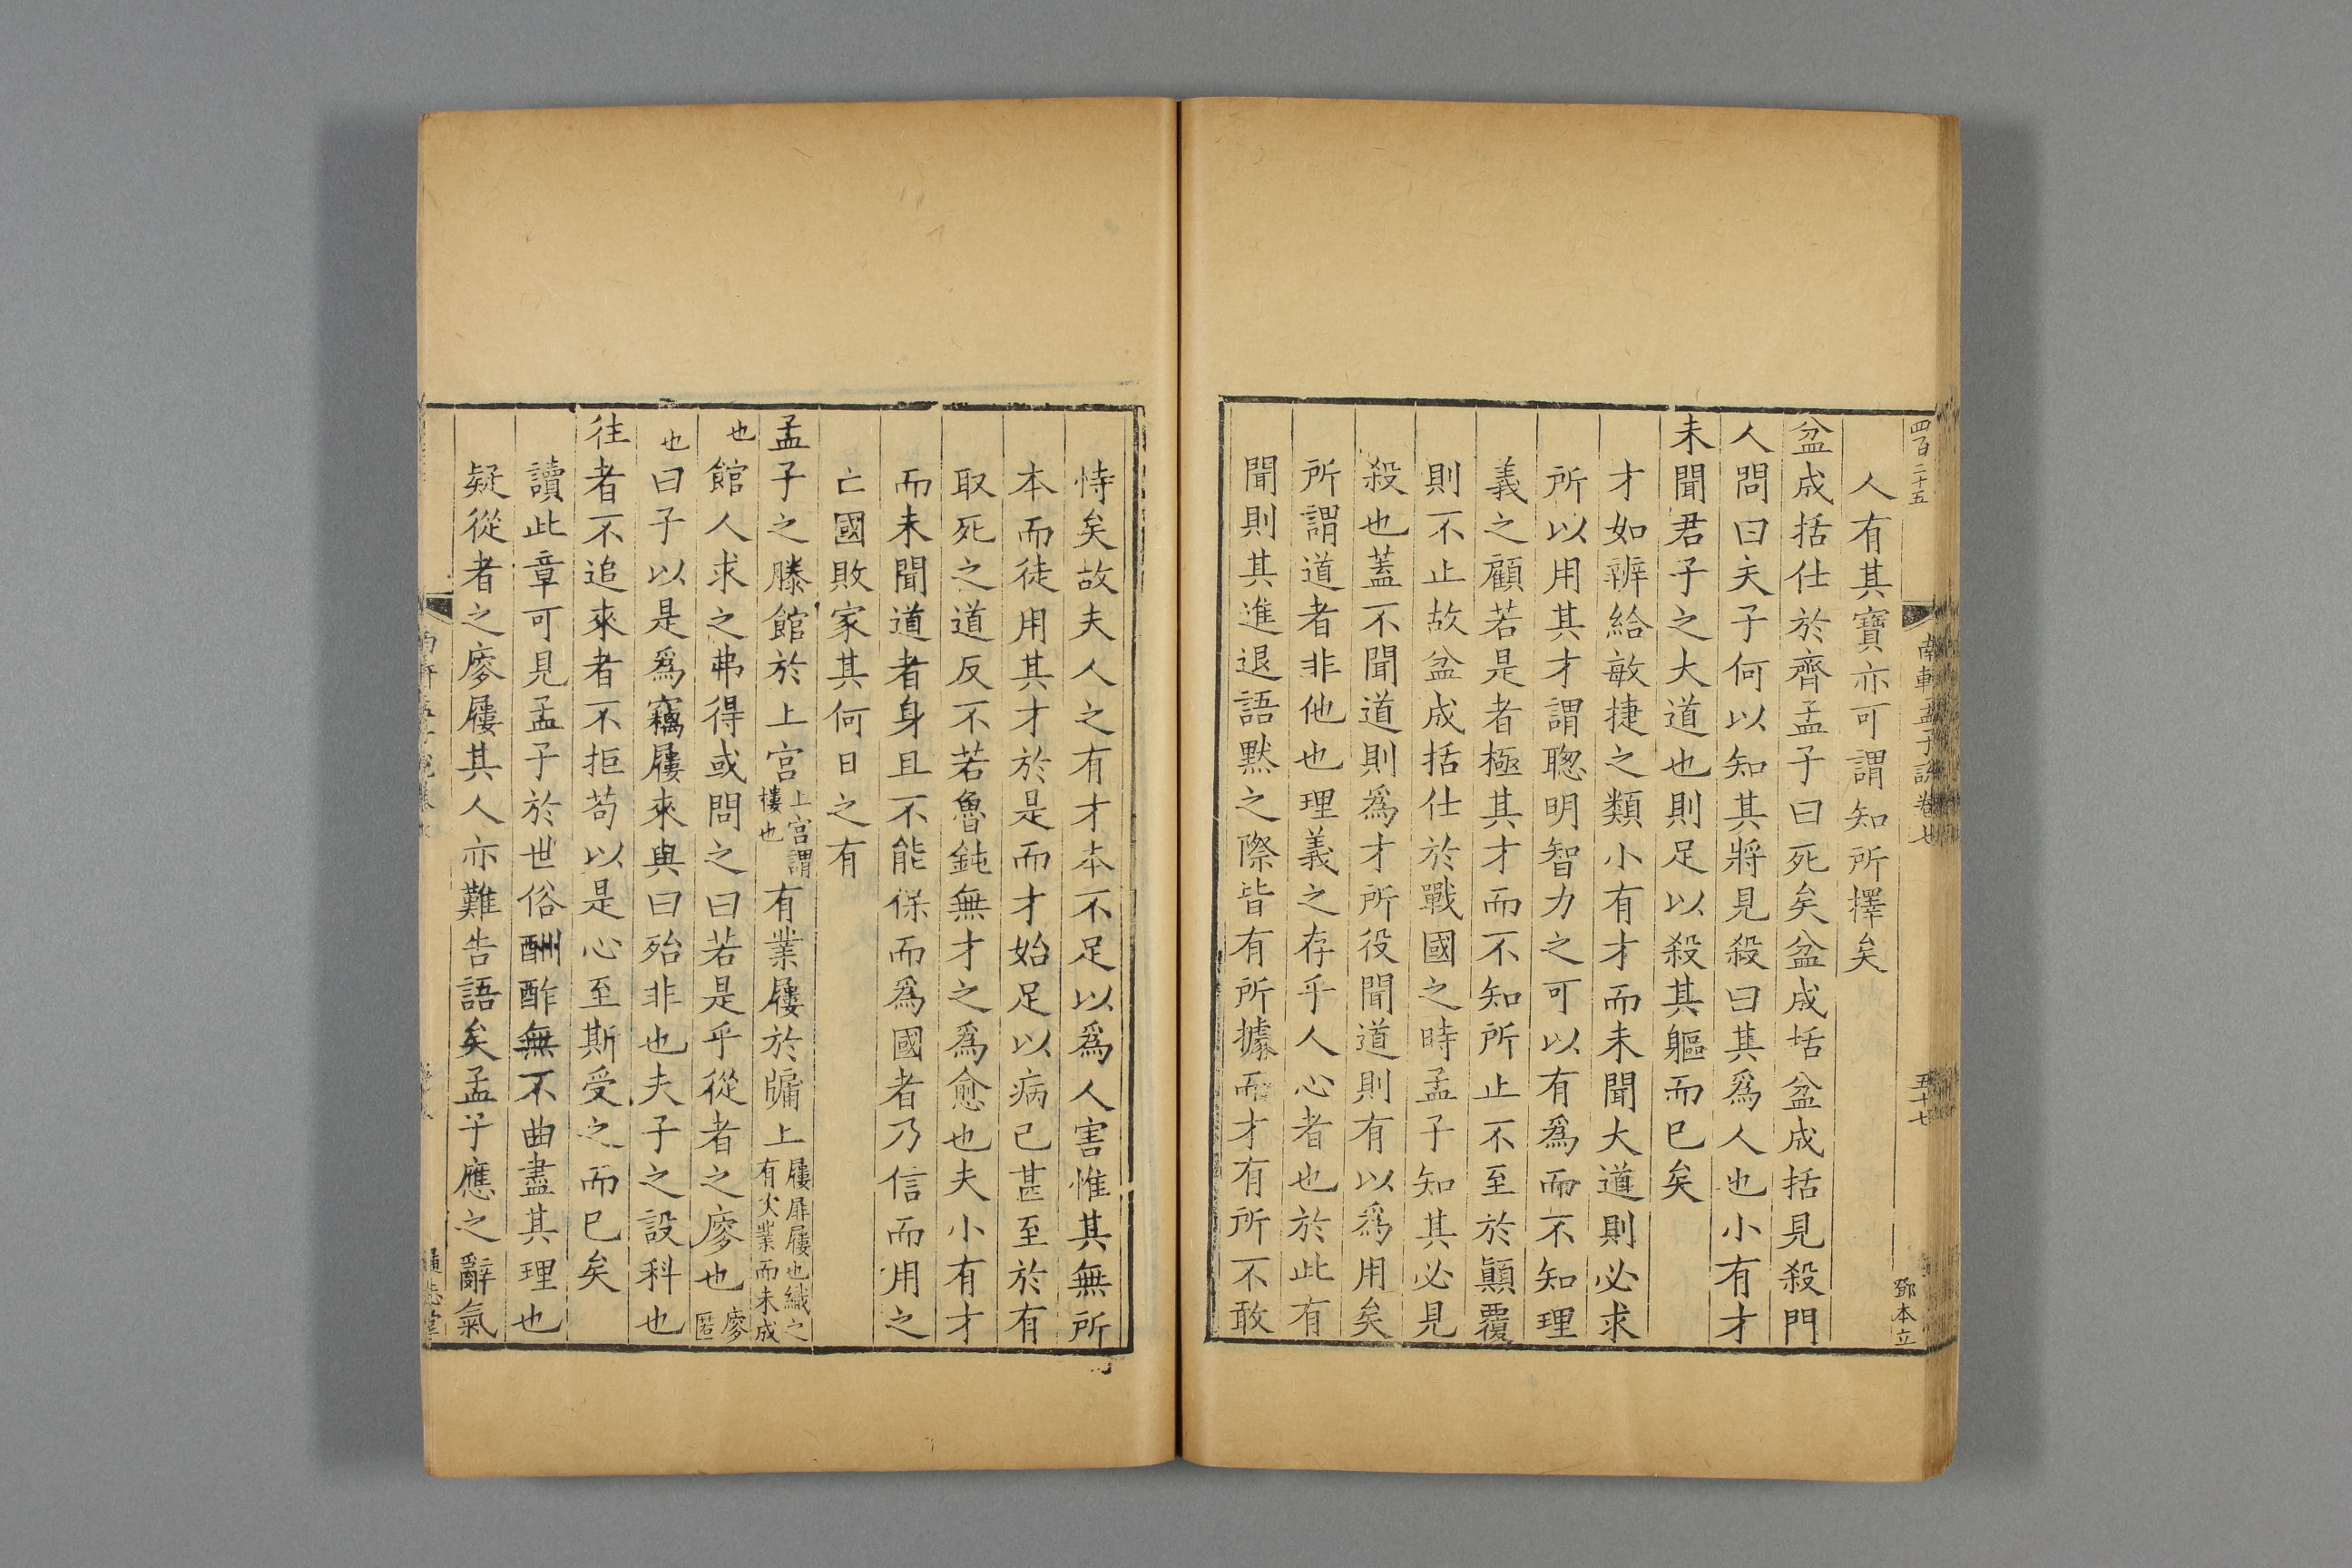 四百二十五
南軒孟子說卷七
五十七
鄧本立
人有其寶亦可謂知所擇矣
盆成括仕於齊孟子曰死矣盆成括盆成括見殺門
人問曰夫子何以知其將見殺曰其爲人也小有才
未聞君子之大道也則足以殺其軀而已矣
才如辨給敏捷之類小有才而未聞大道則必求
所以用其才謂聰明智力之可以有爲而不知理
義之顧若是者極其才而不知所止不至於顛覆
則不止故盆成括仕於戰國之時孟子知其必見
殺也蓋不聞道則爲才所役聞道則有以爲用矣
所謂道者非他也理義之存乎人心者也於此有
聞則其進退語默之際皆有所據而才有所不敢
恃矣故夫人之有才本不足以爲人害惟其無所
本而徒用其才於是而才始足以病己甚至於有
取死之道反不若魯鈍無才之爲愈也夫小有才
而未聞道者身且不能保而爲國者乃信而用之
亡國敗家其何日之有
孟子之滕館於上宮上宮謂樓也有業屨於牖上屨屝屨也織之有次業而未成
也館人求之弗得或問之曰若是乎從者之廋也廋匿
也曰子以是爲竊屨來與曰殆非也夫子之設科也
往者不追來者不拒苟以是心至斯受之而已矣
讀此章可見孟子於世俗酬酢無不曲盡其理也
疑從者之廋屨其人亦難告語矣孟子應之辭氣
通志堂